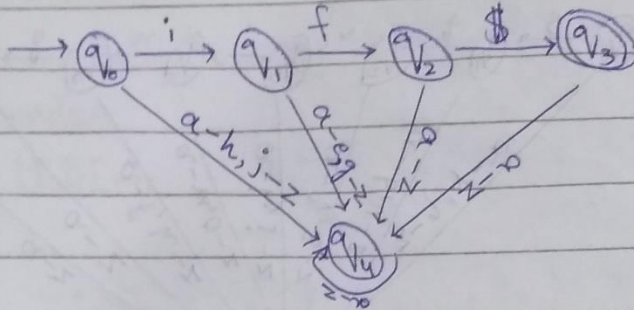 i f $
q0 q1 q2 q3
a-h, j-z a-e, g-z a-z a-z
q4
a-z